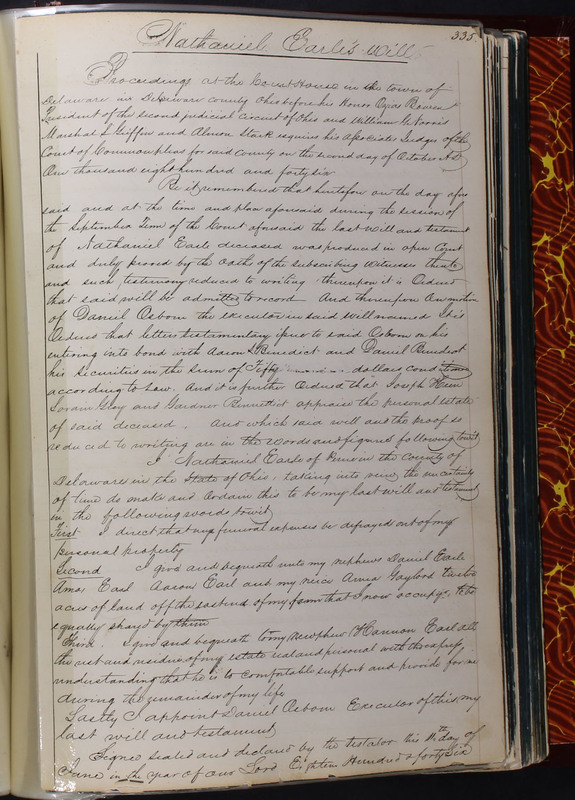 335
Nathaniel Earle's Will
Proceedings at the Court House in the town of
Delaware in Delaware county Ohio before his Honor Ozias Bowen
President of the second judicial circuit of Ohio and William G. Norris
Marshal L Griffin and Almon Stark esquires his Associate Judges of the
Court of Common pleas for said County on the second day of October A D
One thousand eight hundred and forty six
Be it remembered that heretofore on the day afore
said and at the time and place aforesaid during the session of
the September Term of the Court aforesaid the last will and testament
of Nathaniel Earle deceased was produced in open Court
and duly proved by the oaths of the subscribing witnesses thereto
and such testimony reduced to writing thereupon it is Ordered
that said will be admitted to record And thereupon on motion
of Daniel Osborn the executor in said will named It is
Ordered that letters testamentary issue to said Osborn on his
entering into bond with Aaron L Benedict and Daniel Benedict
his securities in the sum of Fifty dollars conditioned
according to Law. And it is further Ordered that Joseph
Gray and Gardner Bennett appraise the personal estate
of said deceased. And which said will and the proof so
reduced to writing are in the words and figures following towit
I Nathaniel Earle of Peru in the County of
Delaware in the State of Ohio, taking into view the uncertainty
of time do make and Ordain this to be my last will and testament
in the following words towit
First I direct that my funeral expenses be defrayed out of my
personal property
Second I give and bequeath unto my nephews Daniel Earle
Amos Earl Aaron Earl and my neice Anna Gaylord twelve
acres of land off the east end of my farm that I now occupy, to be
equally shared by them
Third. I give and bequeath to my Newphew Harmon Earl all
the rest and residue of my estate real and personal with the express
understanding that he is to comfortable support and provide for me
during the remainder of my life
Lastly I appoint Daniel Osborn Executor of this my
last will and testament
Signed sealed and declared by the testator this 11th day of
June in the year of our Lord Eighteen Hundred & forty Six